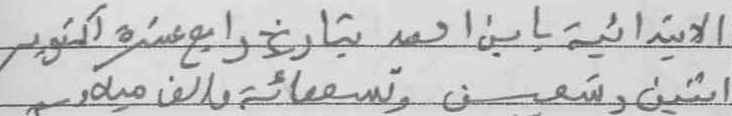 الابتدائية بابن احمد بتاريخ رابع عشرة أكتوبر
اثنين وتسعين وتسعمائة والف ميلادية